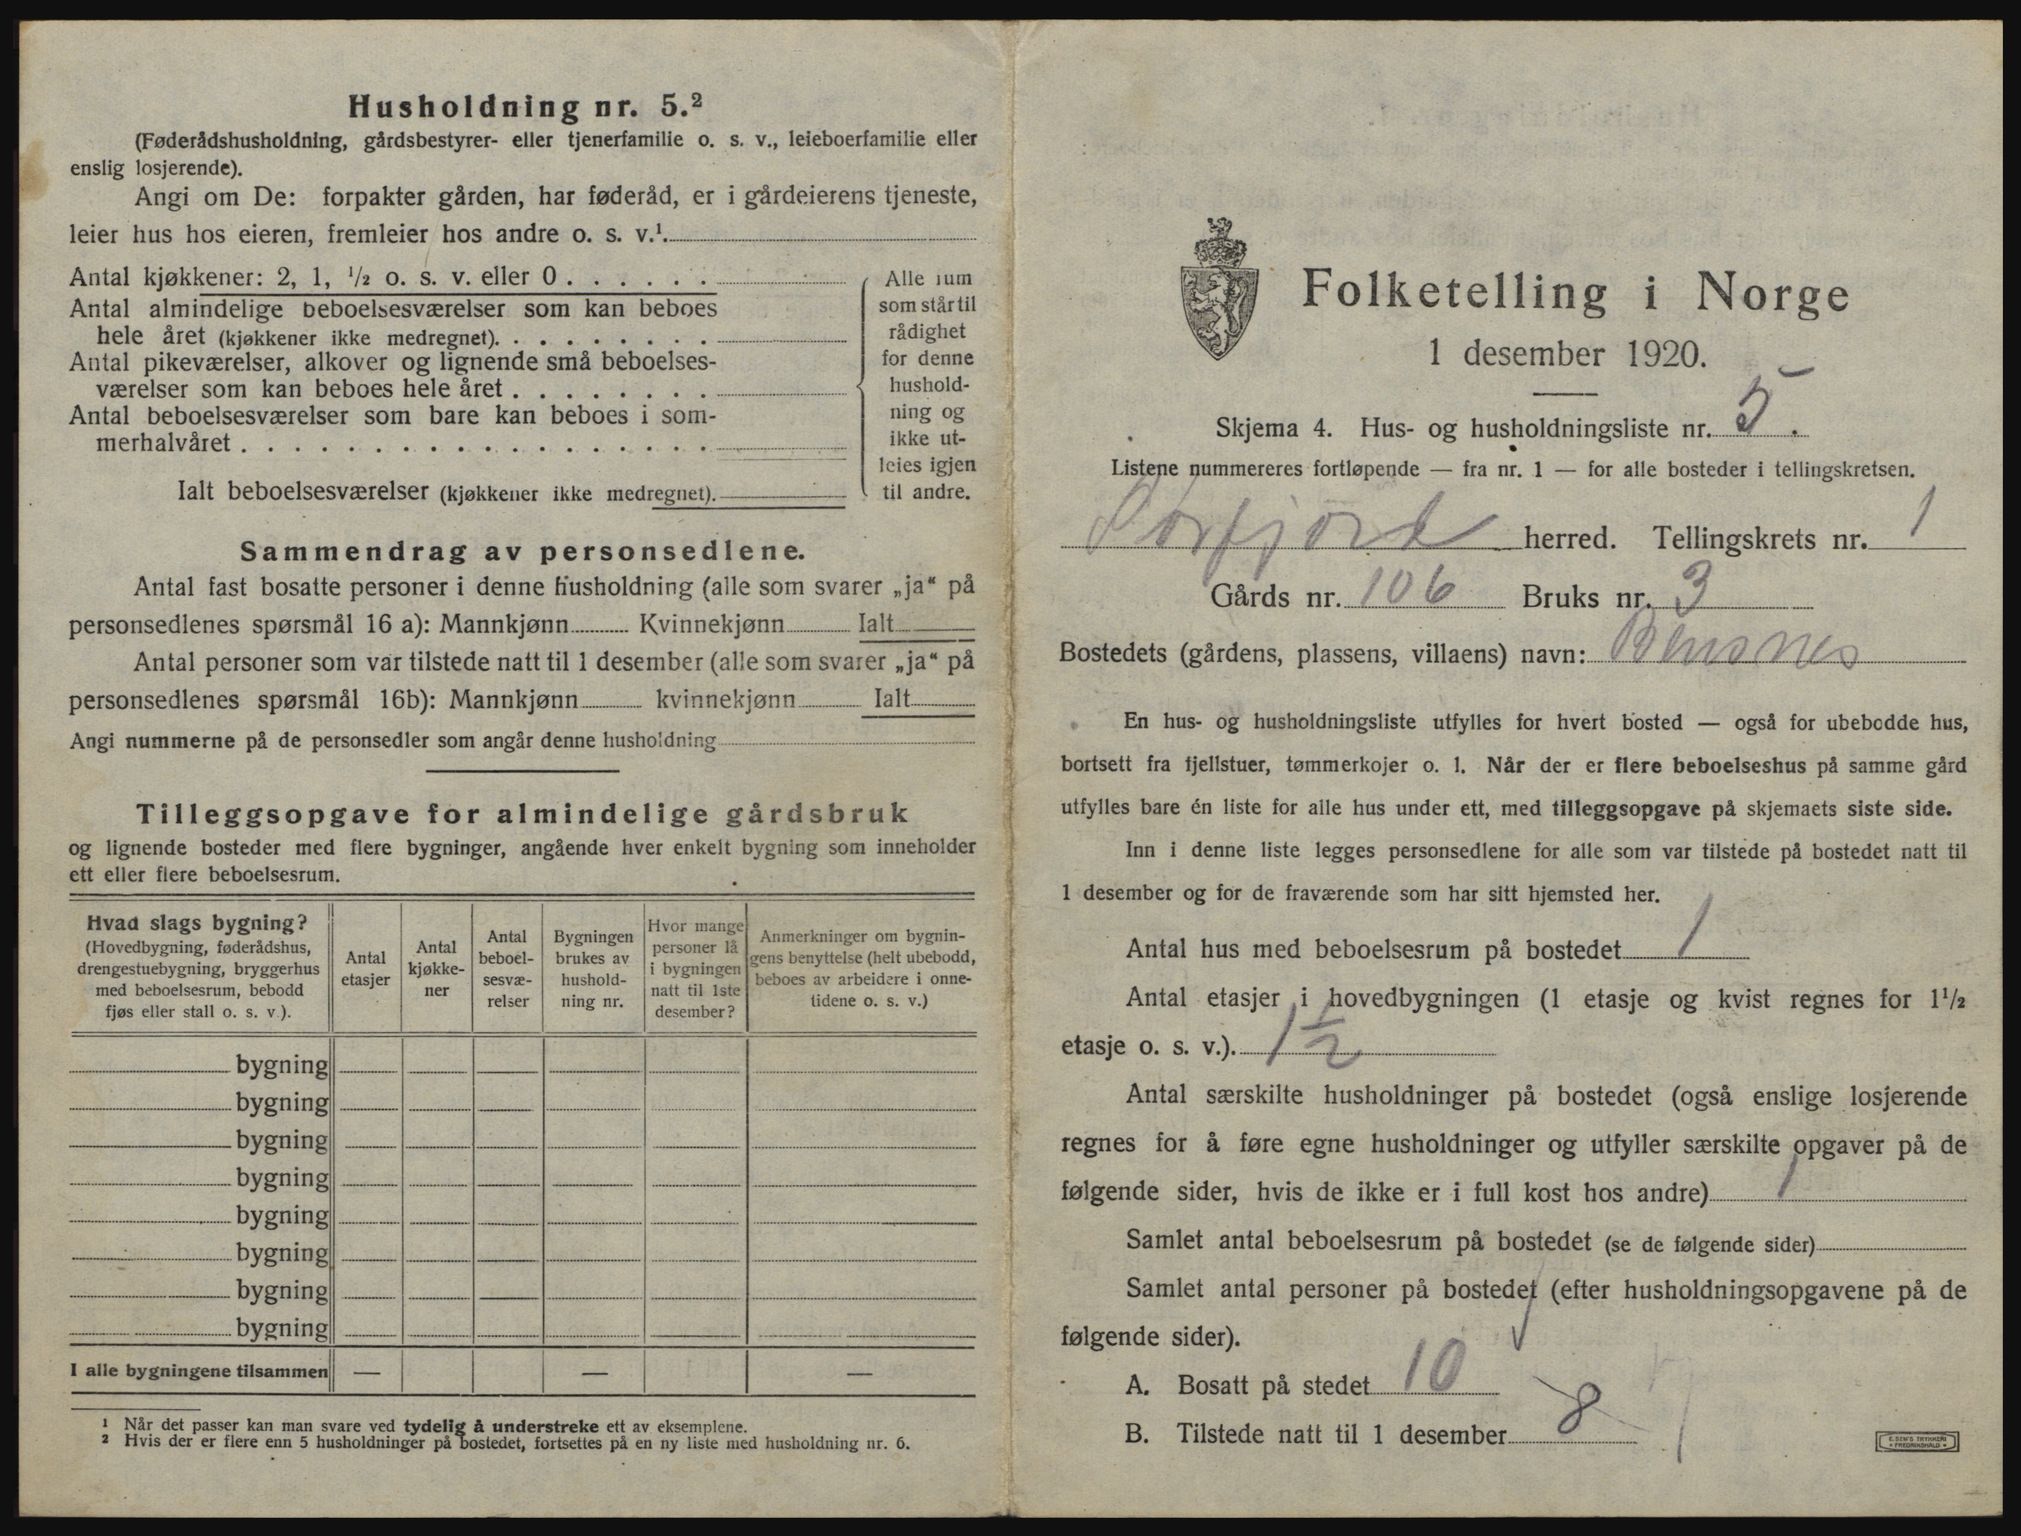 Husholdning nr. 5.²
(Føderådshusholdning, gårdsbestyrer- eller tjenerfamilie o. s. v., leieboerfamilie eller
enslig losjerende).
Angi om De: forpakter gården, har føderåd, er i gårdeierens tjeneste,
leier hus hos eieren, fremleier hos andre o. s. v.¹.
Antal kjøkkener: 2, 1, ½ o. s. v. eller 0 . . . . . .
Antal almindelige beboelsesværelser som kan beboes
hele året (kjøkkener ikke medregnet). . . . . . . . .
Antal pikeværelser, alkover og lignende små beboelses-
værelser som kan beboes hele året . . . . . . . .
Antal beboelsesværelser som bare kan beboes i som-
merhalvåret . . . . . . . . . . . . . . . . . .
Ialt beboelsesværelser (kjøkkener ikke medregnet).
Alle rum
som står til
rådighet
for denne
hushold-
ning og
ikke ut-
leies igjen
til andre.
Sammendrag av personsedlene.
Antal fast bosatte personer i denne husholdning (alle som svarer „ja“ på
personsedlenes spørsmål 16 a): Mannkjønn Kvinnekjønn Ialt
Antal personer som var tilstede natt til 1 desember (alle som svarer „ja“ på
personsedlenes spørsmål 16b): Mannkjønn kvinnekjønn Ialt
Angi nummerne på de personsedler som angår denne husholdning
Tilleggsopgave for almindelige gårdsbruk
og lignende bosteder med flere bygninger, angående hver enkelt bygning som inneholder
ett eller flere beboelsesrum.
Hvad slags bygning?
(Hovedbygning, føderådshus,
drengestuebygning, bryggerhus
med beboelsesrum, bebodd
fjøs eller stall o. s. v.).
Antal
etasjer
Antal
kjøkke-
ner
Antal
beboel-
sesvæ-
relser
Bygningen
brukes av
hushold-
ning nr.
Hvor mange
personer lå
i bygningen
natt til 1ste
desember?
Anmerkninger om bygnin-
gens benyttelse (helt ubebodd,
beboes av arbeidere i onne-
tidene o. s. v.)
bygning
bygning
bygning
bygning
bygning
bygning
bygning
bygning
I alle bygningene tilsammen — — —
¹ Når det passer kan man svare ved tydelig å understreke ett av eksemplene.
² Hvis der er flere enn 5 husholdninger på bostedet, fortsettes på en ny liste med husholdning nr. 6.
Folketelling i Norge
1 desember 1920.
Skjema 4. Hus- og husholdningsliste nr. 5.
Listene nummereres fortløpende — fra nr. 1 — for alle bosteder i tellingskretsen.
Sørfjord herred. Tellingskrets nr. 1
Gårds nr. 106 Bruks nr. 3
Bostedets (gårdens, plassens, villaens) navn: Bensnes
En hus- og husholdningsliste utfylles for hvert bosted — også for ubebodde hus,
bortsett fra fjellstuer, tømmerkojer o. l. Når der er flere beboelseshus på samme gård
utfylles bare én liste for alle hus under ett, med tilleggsopgave på skjemaets siste side.
Inn i denne liste legges personsedlene for alle som var tilstede på bostedet natt til
1 desember og for de fraværende som har sitt hjemsted her.
Antal hus med beboelsesrum på bostedet 1
Antal etasjer i hovedbygningen (1 etasje og kvist regnes for 1½
etasje o. s. v.). 1½
Antal særskilte husholdninger på bostedet (også enslige losjerende
regnes for å føre egne husholdninger og utfyller særskilte opgaver på de
følgende sider, hvis de ikke er i full kost hos andre) 1
Samlet antal beboelsesrum på bostedet (se de følgende sider)
Samlet antal personer på bostedet (efter husholdningsopgavene på de
følgende sider).
A. Bosatt på stedet 10
B. Tilstede natt til 1 desember 8 7
E. SEM'S TRYKKERI
FREDRIKSHALD